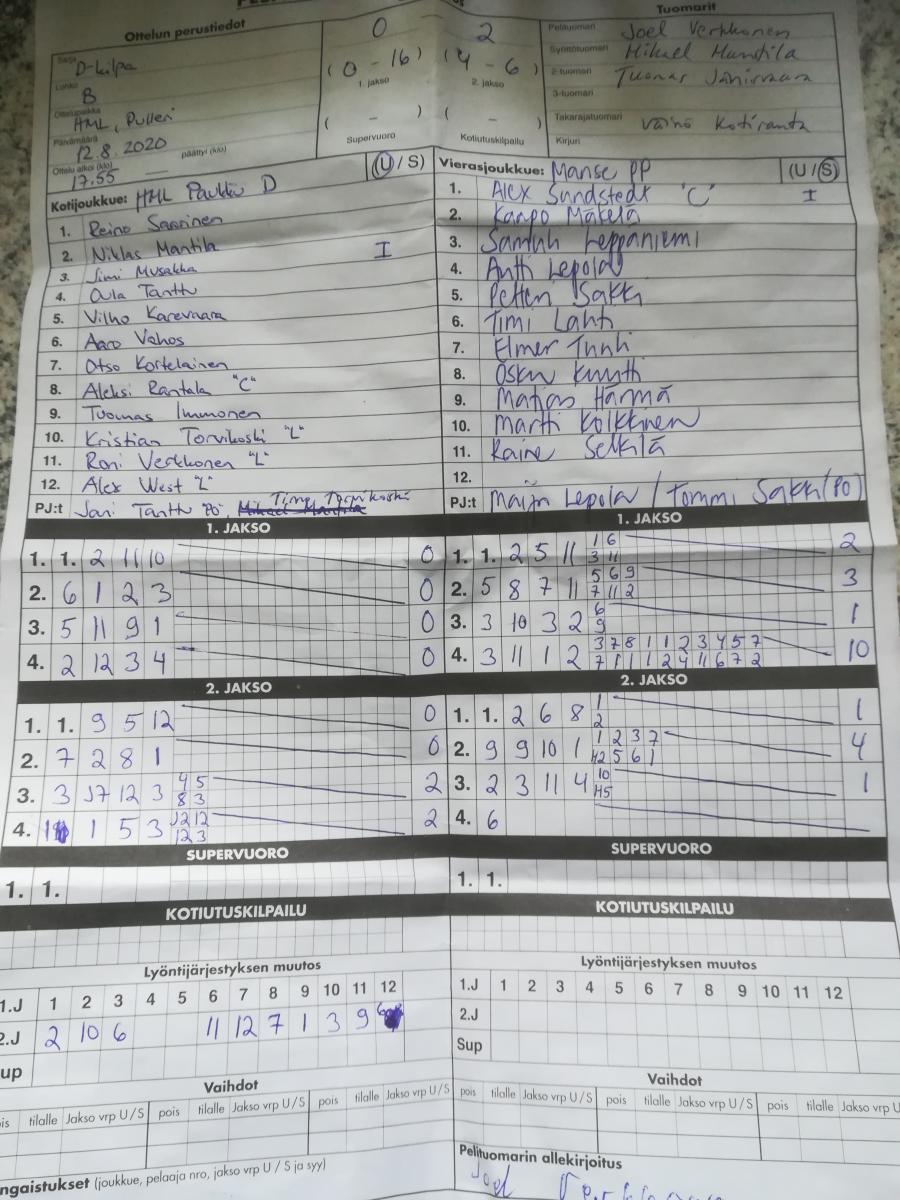 Ottelun perustiedot
Sarja D-kilpa
Lohko B
Ottelupaikka HML, Pulleri
Päivämäärä 12.8.2020
Ottelu alkoi (klo) 17.55 päättyi (klo) —
0 – 2
(0 - 16) (4 - 6)
1. jakso 2. jakso
( – ) ( – )
Supervuoro Kotiutuskilpailu
Tuomarit
Pelituomari Joel Verkkonen
Syöttötuomari Mikael Mantila
2-tuomari Tuomas
3-tuomari
Takarajatuomari Väinö Kotiranta
Kirjuri
Kotijoukkue: HML Paukku D (U / S)
1. Reino Saarinen
2. Niklas Mantila I
3. Jimi Musakka
4. Oula Tanttu
5. Vilho Karevaara
6. Aaro Vahos
7. Otso Kortelainen
8. Aleksi Rantala "C"
9. Tuomas Immonen
10. Kristian Torvikoski "L"
11. Roni Verkkonen "L"
12. Alex West "L"
PJ:t Jari Tanttu PJ, Timo Torvikoski
Vierasjoukkue: Manse PP (U / S)
1. Alex Sundstedt "C" I
2. Kaapo Mäkelä
3. Samuli Leppäniemi
4. Antti Lepola
5. Petteri Sakki
6. Timi Lahti
7. Elmer
8. Osku
9. Matias Härmä
10. Martti Kolkkinen
11. Raine Selkilä
12.
PJ:t Maiju Lepola / Tommi Sakki (PJ)
1. JAKSO
1. 1. 2 11 10 0
2. 6 1 2 3 0
3. 5 11 9 1 0
4. 2 12 3 4 0
1. JAKSO
1. 1. 2 5 11 1 6 2
3 11
2. 5 8 7 11 5 6 9 3
7 11 2
3. 3 10 3 2 6 1
9
4. 3 11 1 2 3 7 8 1 1 2 3 4 5 7 10
7 1 1 1 2 4 11 6 7 2
2. JAKSO
1. 1. 9 5 12 0
2. 7 2 8 1 0
3. 3 J7 12 3 4 5 2
8 3
4. 1 5 3 J2 12 2
12 3
2. JAKSO
1. 1. 2 6 8 1 1
2
2. 9 9 10 1 1 2 3 7 4
H2 5 6 1
3. 2 3 11 4 10 1
H5
4. 6
SUPERVUORO
1. 1.
SUPERVUORO
1. 1.
KOTIUTUSKILPAILU
KOTIUTUSKILPAILU
Lyöntijärjestyksen muutos
1.J 1 2 3 4 5 6 7 8 9 10 11 12
2.J 2 10 6 11 12 7 1 3 9
up
Lyöntijärjestyksen muutos
1.J 1 2 3 4 5 6 7 8 9 10 11 12
2.J
Sup
Vaihdot
is tilalle Jakso vrp U / S pois tilalle Jakso vrp U / S pois tilalle Jakso vrp U / S
Vaihdot
pois tilalle Jakso vrp U / S pois tilalle Jakso vrp U / S pois tilalle Jakso vrp U
ngaistukset (joukkue, pelaaja nro, jakso vrp U / S ja syy)
Pelituomarin allekirjoitus
Joel